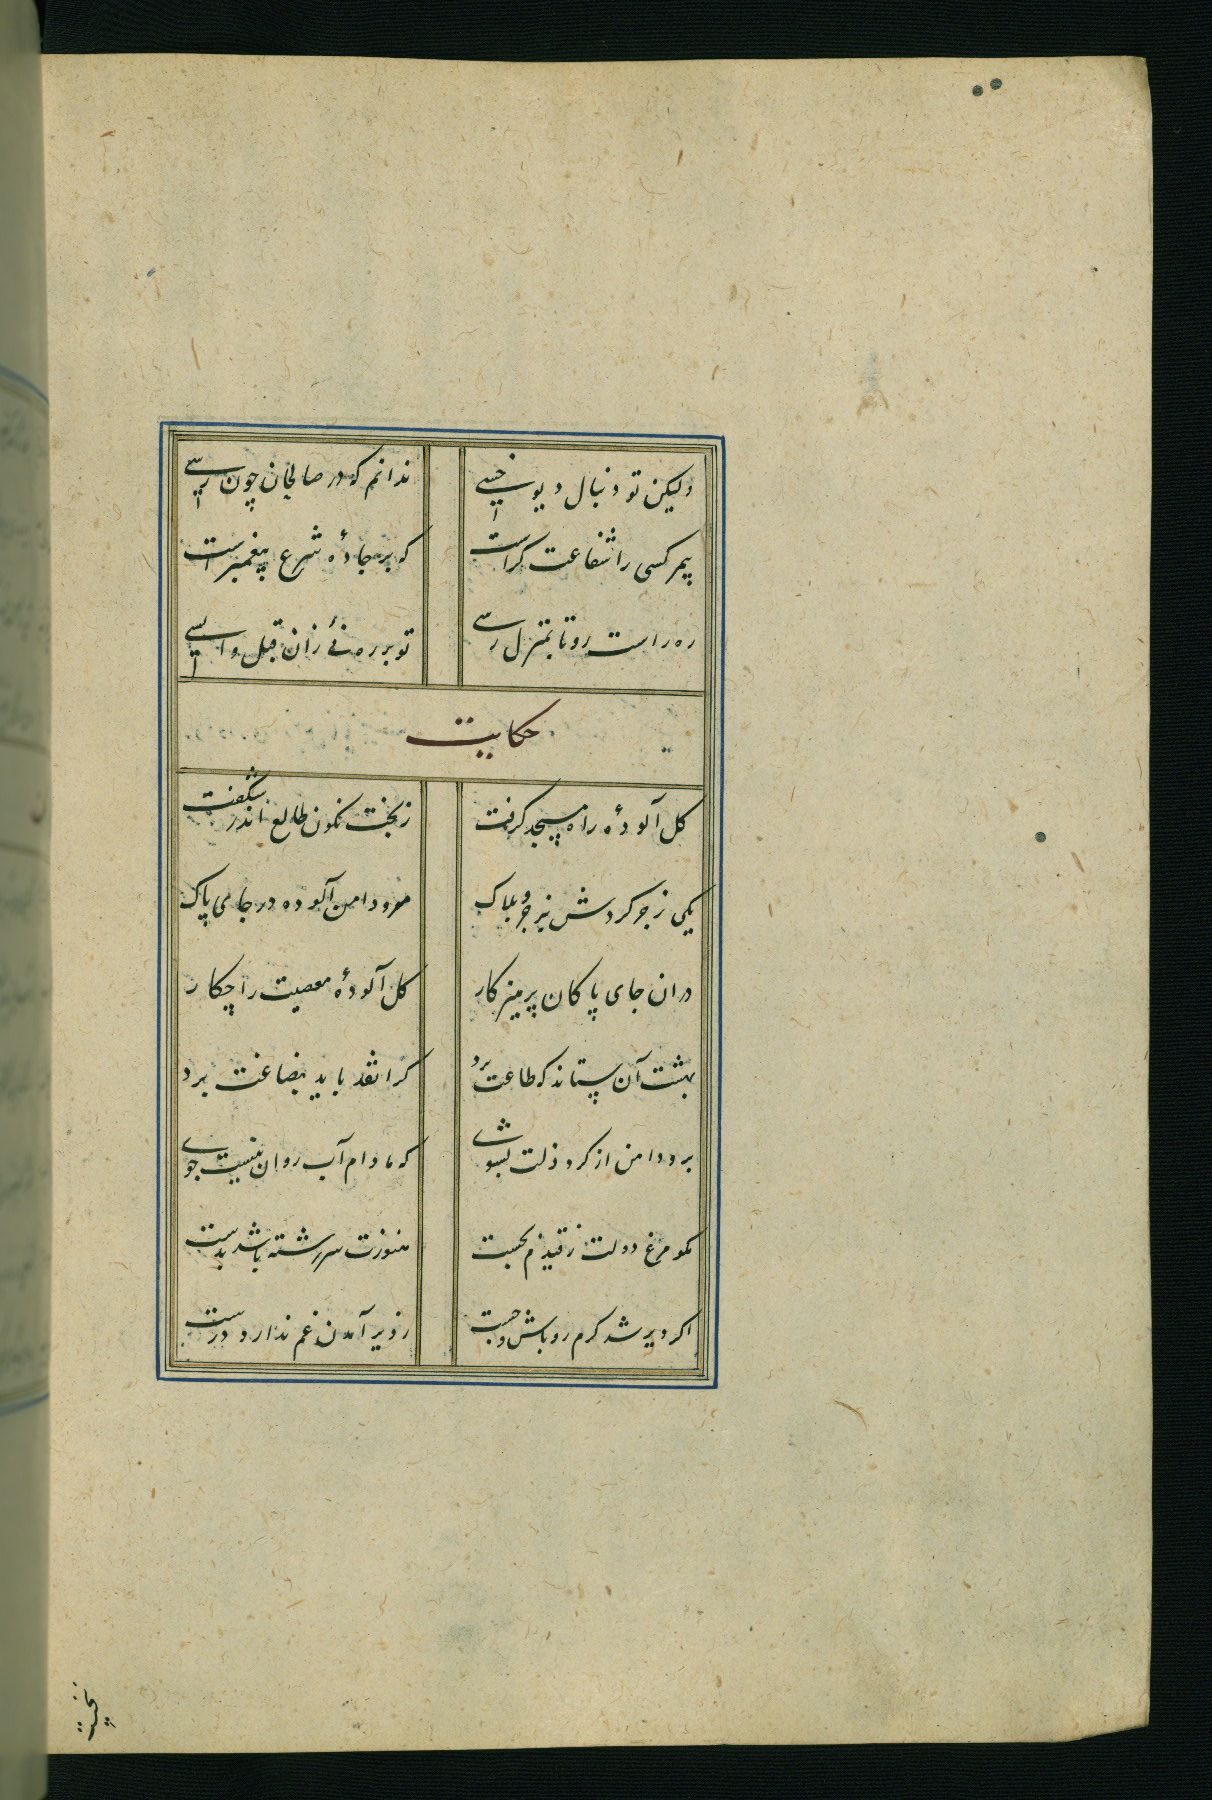 ولیکن تو دنبال دیو خسی ندانم که در صالحان چون رسی
پیمبر کسی را شفاعت کراست که بر جادۀ شرع پیغمبر است
ره راست رو تا بمنزل رسی تو بر ره نئ زان قبل واپسی
حکایت
کل آلودۀ راه مسجد کرفت ز بخت نکون طالع اندر شکفت
یکی زجر کردش که در جای پاک مرو دامن آلوده
دران جای پاکان پرهیزکار کل آلودۀ معصیت را چکار
بهشت آن ستاند که طاعت برد کرا نقد باید بضاعت برد
برو دامن از کرد ذلت بشوی که مادام آب روان نیست جوی
مکو مرغ دولت ز قیدم بجست هنوزت سر رشته باشد بدست
اکر دیر شد کرم رو باش و چست ز دیر آمدن غم ندارد درست